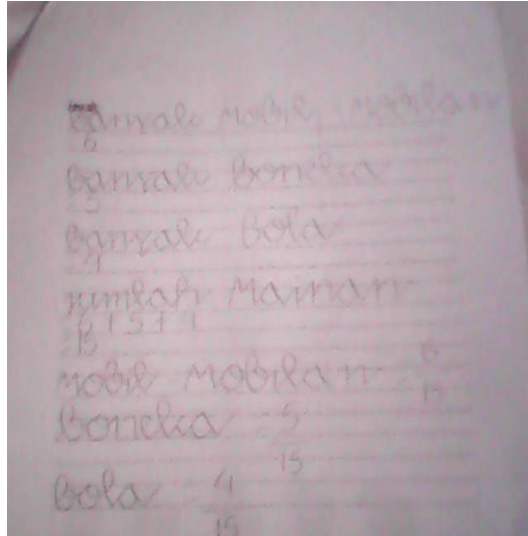 banyak mobil mobilan
6
banyak boneka
5
banyak bola
4
jumlah mainan
6 + 5 + 4
15
mobil mobilan 6
15
boneka 5
15
bola 4
15